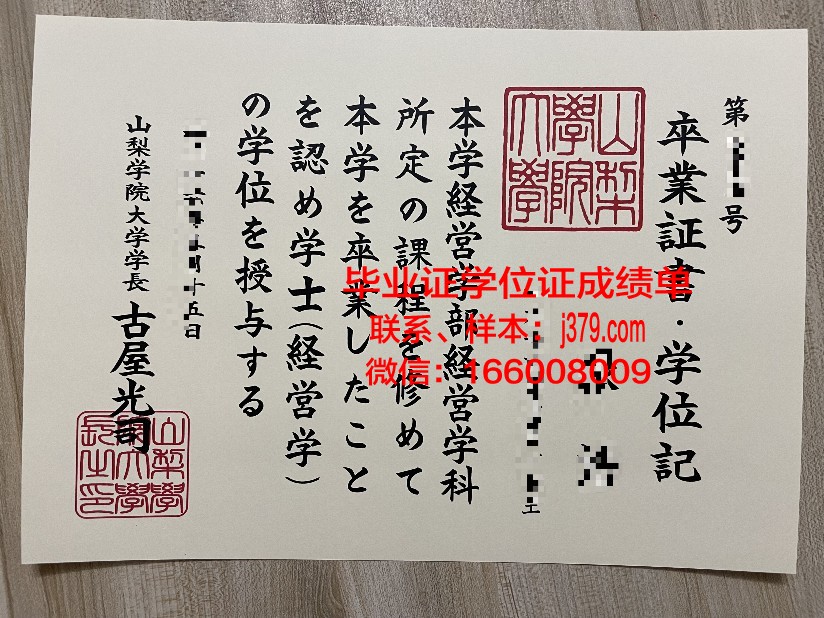 第
号
卒業証書・学位記
山梨
學院
大學
本学経営学部経営学科
所定の課程を修めて
本学を卒業したこと
を認め学士(経営学)
の学位を授与する
月十五日
山梨学院大学学長 古屋光司
山梨學
院大學
長之印
毕业证学位证成绩单
联系、样本：j379.com
微信：166008009